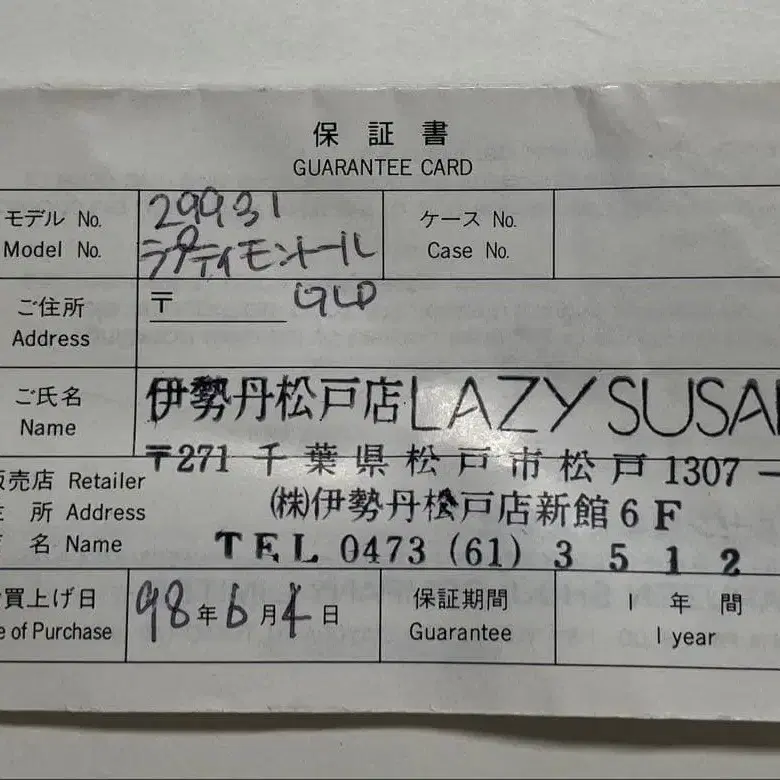 保証書
GUARANTEE CARD
モデル No.
Model No.
29931
ラプティモントール
GLD
ケース No.
Case No.
ご住所
Address
〒
ご氏名
Name
伊勢丹松戸店 LAZY SUSA
〒271 千葉県松戸市松戸1307－
(株)伊勢丹松戸店新館6F
TEL 0473 (61) 3512
売店 Retailer
所 Address
名 Name
買上げ日
e of Purchase
98年6月4日
保証期間
Guarantee
1年間
1 year